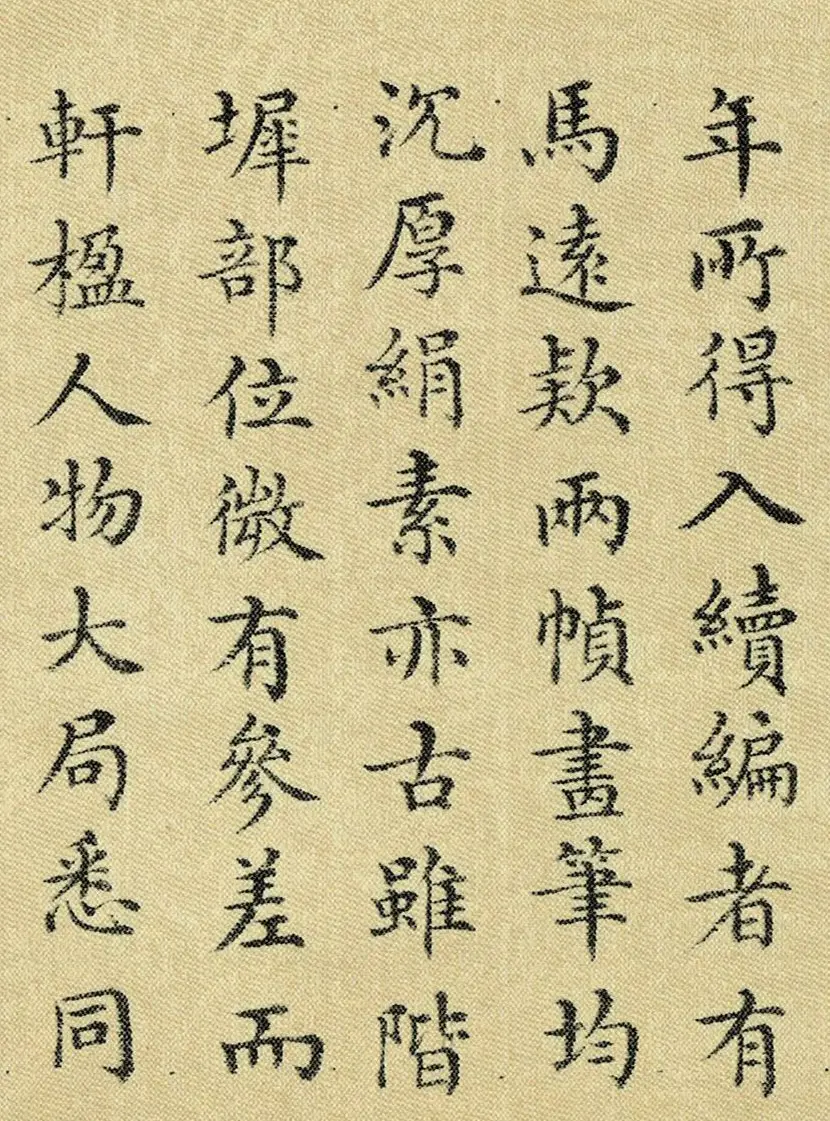 年所得入續編者有
馬遠款兩幀畫筆均
沉厚絹素亦古雖階
墀部位微有參差而
軒楹人物大局悉同